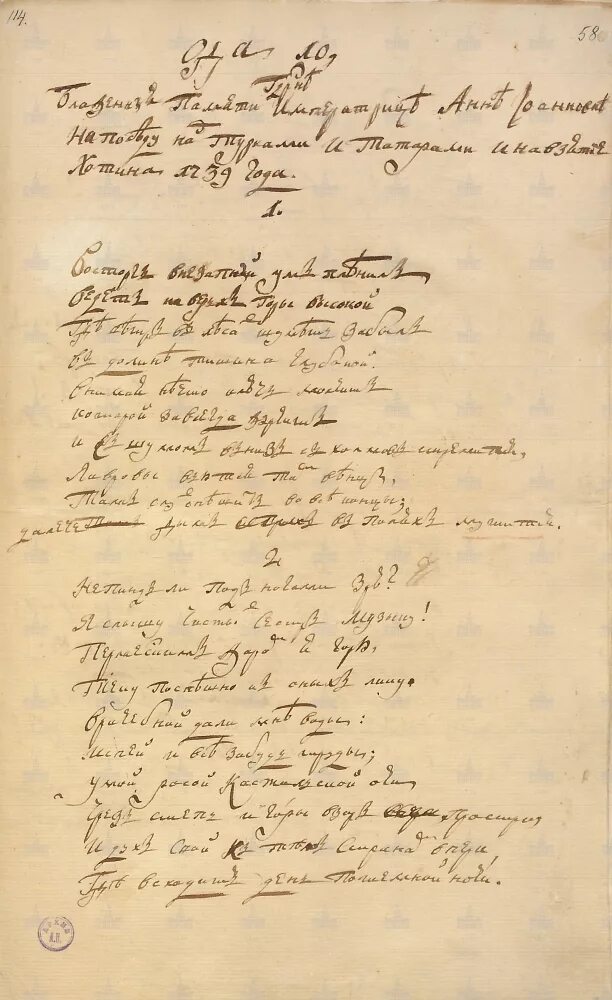 114.
58
Ода 10,
Блаженныя Памяти Гдрнѣ Императрицѣ Аннѣ Іоанновнѣ
На побѣду надъ Турками И Татарами и на взятїе
Хотина 1739 Года.
1.
Восторгъ внезапный умъ плѣнилъ
Ведетъ на верьхъ Горы высокой
Гдѣ вѣтръ въ лѣсахъ шумѣть забылъ
Въ долинѣ тишина Глубокой.
Внимая нѣчто ключь молчитъ
которой Завсегда журчитъ
И съ шумомъ внизъ съ холмовъ стремится,
Лавровы вьются тамъ вѣнцы,
Тамъ слухъ спѣшитъ во всѣ концы;
далече дымъ въ поляхъ курится.
2
Не Пиндъ ли подъ ногами Зрю?
Я слышу Чистыхъ Сестръ Музыку!
Пермесскимъ Жаромъ Я Горю,
Теку поспѣшно къ оныхъ лику.
Врачебной дали мнѣ воды:
Испей и всѣ забудь труды;
умой росой Кастальской очи
Чрезъ степь и горы взоръ простри
И духъ свой къ тѣмъ Странамъ впери,
Гдѣ всходитъ день по темной ночи.